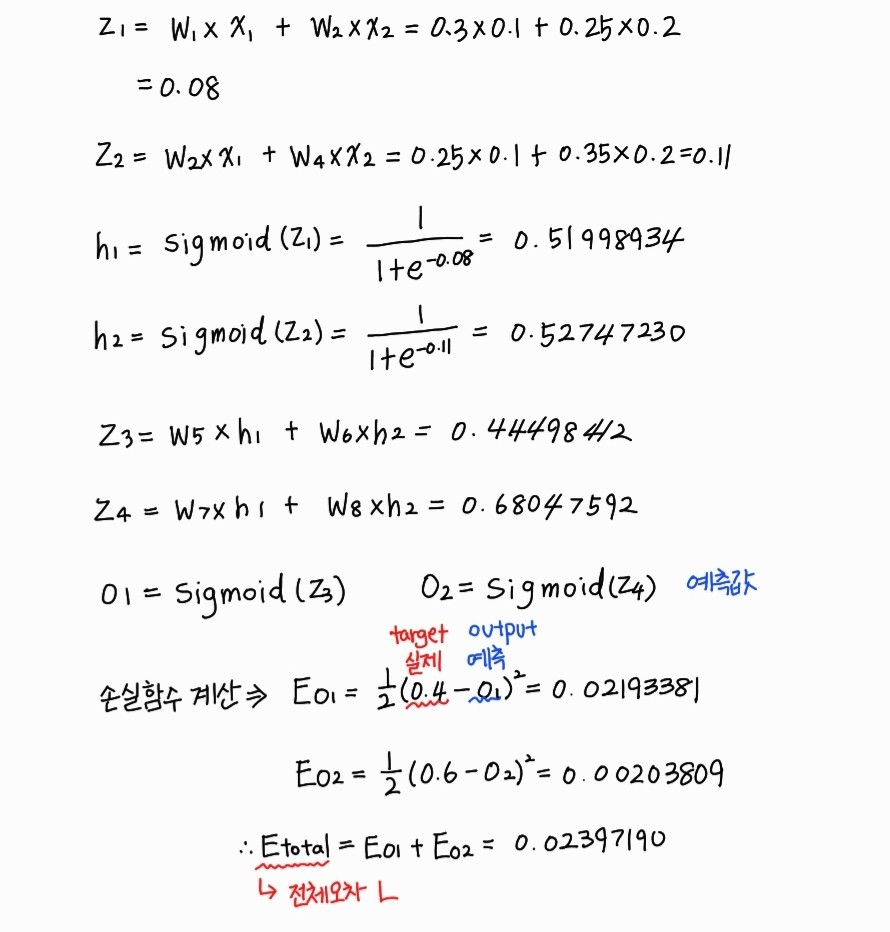 z1 = W1 x x1 + W2 x x2 = 0.3x0.1 + 0.25x0.2
= 0.08
Z2 = W2x x1 + W4 x x2 = 0.25x0.1 + 0.35x0.2=0.11
h1 = sigmoid (Z1) = 1/(1+e^-0.08) = 0.51998934
h2 = Sigmoid (Z2) = 1/(1+e^-0.11) = 0.52747230
Z3 = W5 x h1 + W6xh2 = 0.44498412
Z4 = W7x h1 + W8 xh2 = 0.68047592
O1 = Sigmoid (Z3) O2 = Sigmoid(Z4) 예측값
target output
실제 예측
손실함수 계산⇒ EO1 = 1/2(0.4-O1)² = 0.02193381
EO2 = 1/2(0.6-O2)² = 0.00203809
∴ Etotal = EO1 + EO2 = 0.02397190
↳ 전체오차 L